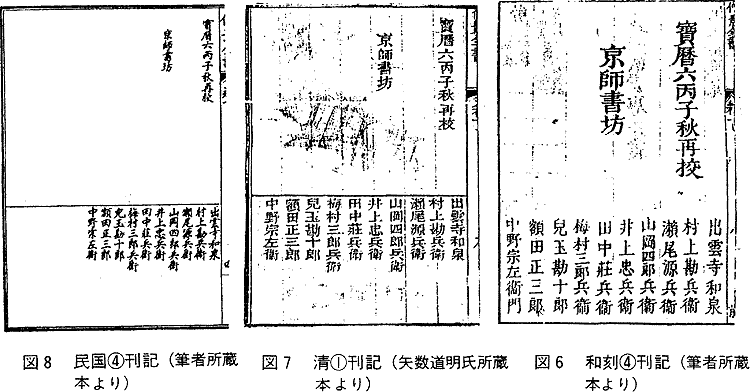 寶曆六丙子秋再校
京師書坊
出雲寺和泉
村上勘兵衛
瀬尾源兵衛
山岡四郎兵衛
井上忠兵衛
田中莊兵衛
梅村三郎兵衛
兒玉勘十郎
額田正三郎
中野宗左衛門
図6 和刻④刊記(筆者所蔵
本より)
寶曆六丙子秋再校
京師書坊
出雲寺和泉
村上勘兵衛
瀬尾源兵衛
山岡四郎兵衛
井上忠兵衛
田中莊兵衛
梅村三郎兵衛
兒玉勘十郎
額田正三郎
中野宗左衛
図7 清①刊記(矢数道明氏所蔵
本より)
寶曆六丙子秋再校
京師書坊
出雲寺和泉
村上勘兵衛
瀬尾源兵衛
山岡四郎兵衛
井上忠兵衛
田中莊兵衛
梅村三郎兵衛
兒玉勘十郎
額田正三郎
中野宗左衛
図8 民国④刊記(筆者所蔵
本より)